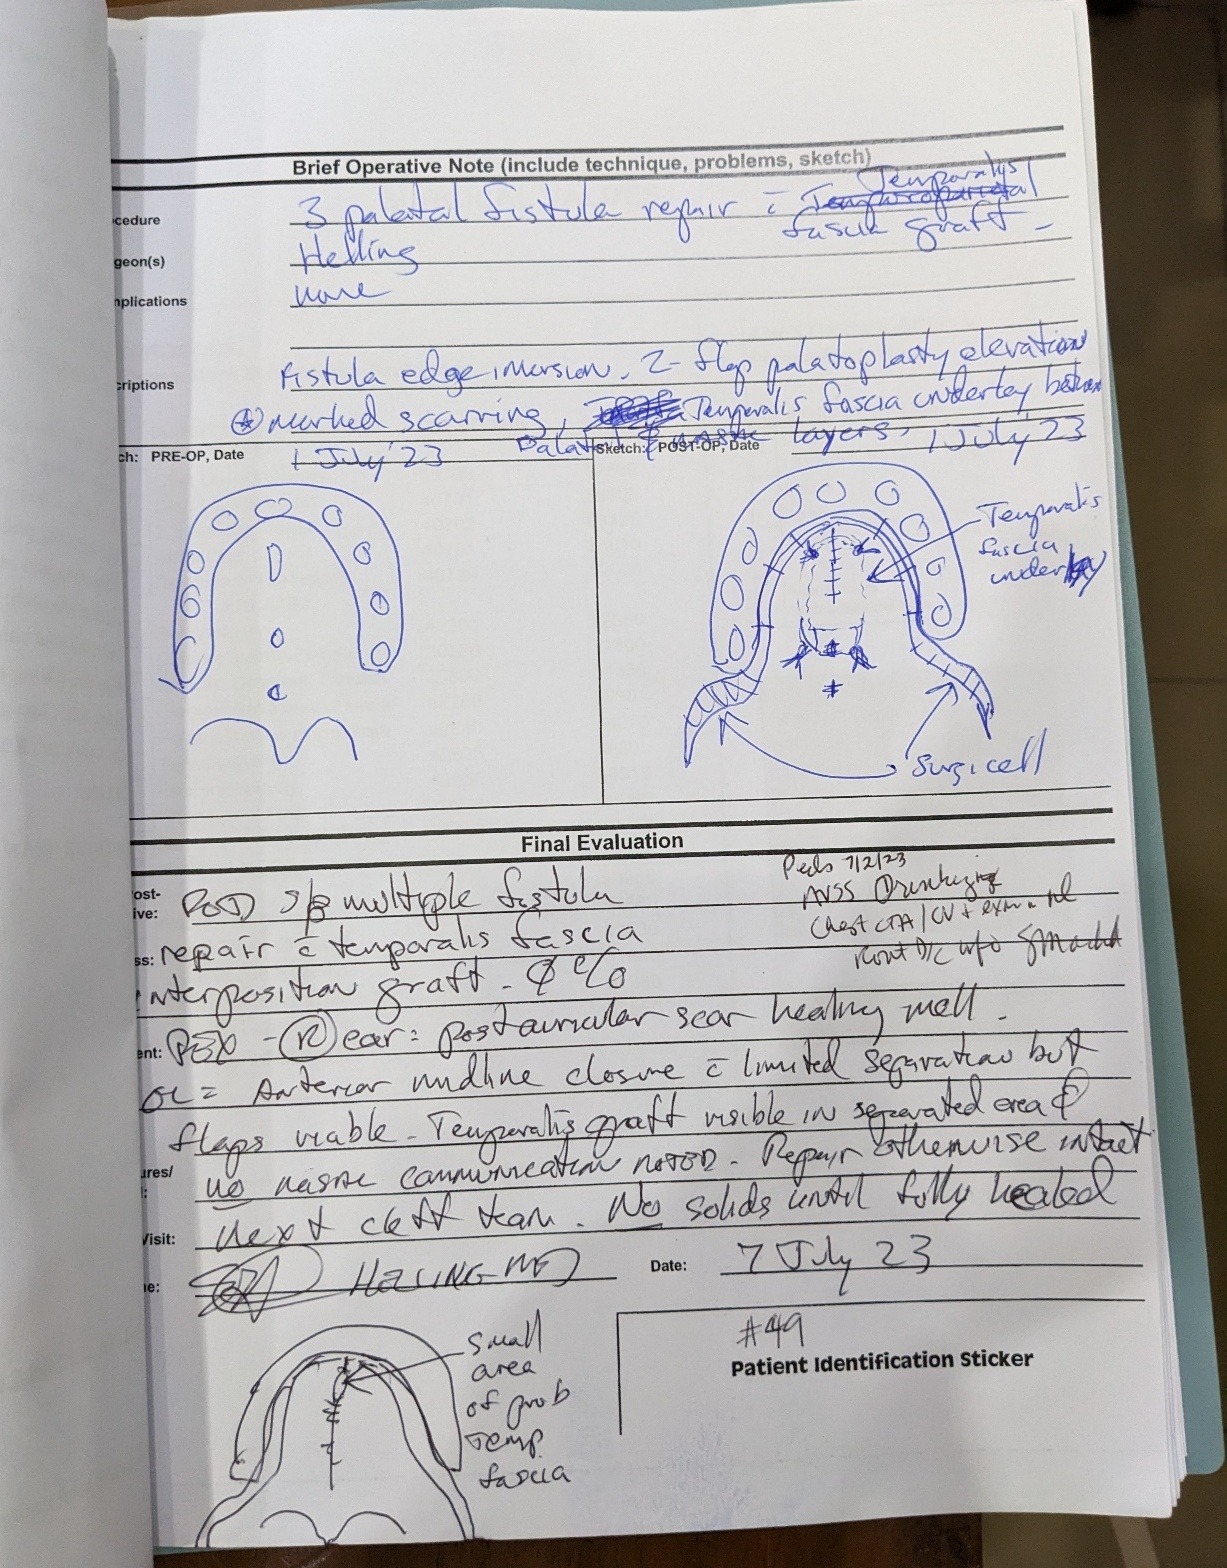 Brief Operative Note (include technique, problems, sketch)
cedure 3 palatal fistula repair c̄ Temporalis
fascia graft -
geon(s) Helling
nplications none
criptions Fistula edge inversion. 2-flap palatoplasty elevation
⊕ marked scarring, Temporalis fascia underlay between
Palatal & nasal layers.
ch: PRE-OP, Date 1 July '23
Sketch: POST-OP, Date 1 July 23
Temporalis
fascia
underlay
Surgicell
Final Evaluation
Peds 7/2/23
AVSS Drinking
Chest CTA / CV + exam nl
ost-
ive: POD s/p multiple fistula
ss: repair c̄ temporalis fascia
interposition graft. Ø c/o
ent: PEX - Ⓡ ear: postauricular scar healing well.
OC = Anterior midline closure c̄ limited separation but
flaps viable. Temporalis graft visible in separated area &
ures/
: no nasal communication noted. Repair otherwise intact
Visit: Next cleft team. No solids until fully healed
e: HELLING MD Date: 7 July 23
small
area
of prob
Temp
fascia
#49
Patient Identification Sticker